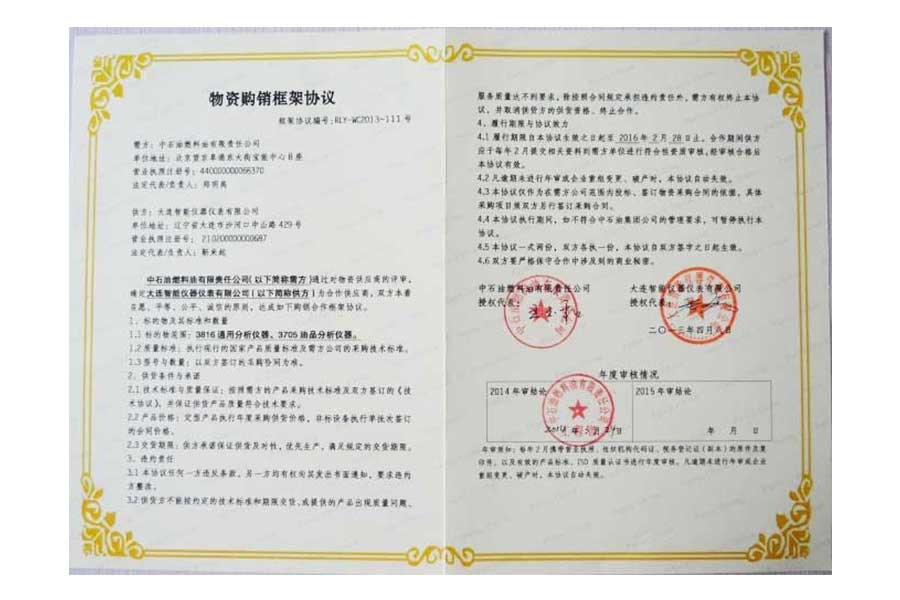 物资购销框架协议
框架协议编号：RLY-WC2013-111 号
需方：中石油燃料油有限责任公司
单位地址：北京货东阜通东大街宝能中心B座
营业执照注册号：440000000066370
法定代表/负责人：郑明禹
供方：大连智能仪器仪表有限公司
单位地址：辽宁省大连市沙河口中山路429号
营业执照注册号：210200000000687
法定代表/负责人：靳来起
中石油燃料油有限责任公司（以下简称需方）通过对物资供应商的评审，
确定大连智能仪器仪表有限公司（以下简称供方）为合作供应商，双方本着
自愿、平等、公平、诚信的原则，达成如下购销合作框架协议。
1、标的物及其标准和数量
1.1 标的物范围：3816 通用分析仪器、3705 油品分析仪器。
1.2 质量标准：执行现行的国家产品质量标准及需方公司的采购技术标准。
1.3 型号与数量：以双方签订的采购合同为准。
2、供货条件与承诺
2.1 技术标准与质量保证：按照需方的产品采购技术标准及双方签订的《技
术协议》，并保证供货产品质量符合技术要求。
2.2 产品价格：定型产品执行年度采购供货价格，非标设备执行单独次签订
的合同价格。
2.3 交货期限：供方承诺保证供货及时性，优先生产，满足规定的交货期限。
3、违约责任
3.1 本协议任何一方违反条款，另一方均有权向其发出书面通知，要求违约
方整改。
3.2 供货方不能按约定的技术标准和期限交货，或提供的产品出现质量问题，
服务质量达不到要求，除按照合同规定承担违约责任外，需方有权终止本协
议，并取消供货方的供货资格、终止合作。
4、履行期限与协议效力
4.1 履行期限自本协议生效之日起至 2016 年 2 月 28 日止。合作期间供方
应于每年 2 月提交相关资料到需方单位进行符合性资质审核，经审核合格后
本协议有效。
4.2 凡逾期未进行年审或企业重组变更、破产时，本协议自动失效。
4.3 本协议仅作为在需方公司范围内投标、签订物资采购合同的依据，具体
采购项目须双方另行签订采购合同。
4.4 本协议执行期间，如不符合中石油集团公司的管理要求，可暂停执行本
协议。
4.5 本协议一式两份，双方各执一份，本协议自双方签字之日起生效。
4.6 双方要严格保守合作中涉及到的商业秘密。
中石油燃料油有限责任公司 大连智能仪器仪表有限公司
授权代表： 授权代表：
二〇一三年四月八日
年度审核情况
2014 年审结论 2015 年审结论
2014 年 3 月 日 年 月 日
年审须知：每年 2 月携带营业执照、组织机构代码证、税务登记证（副本）的原件及复
印件，以及有效的产品标准、ISO 质量认证书进行年度审核。凡逾期未进行年审或企业
重组变更、破产时，本协议自动失效。